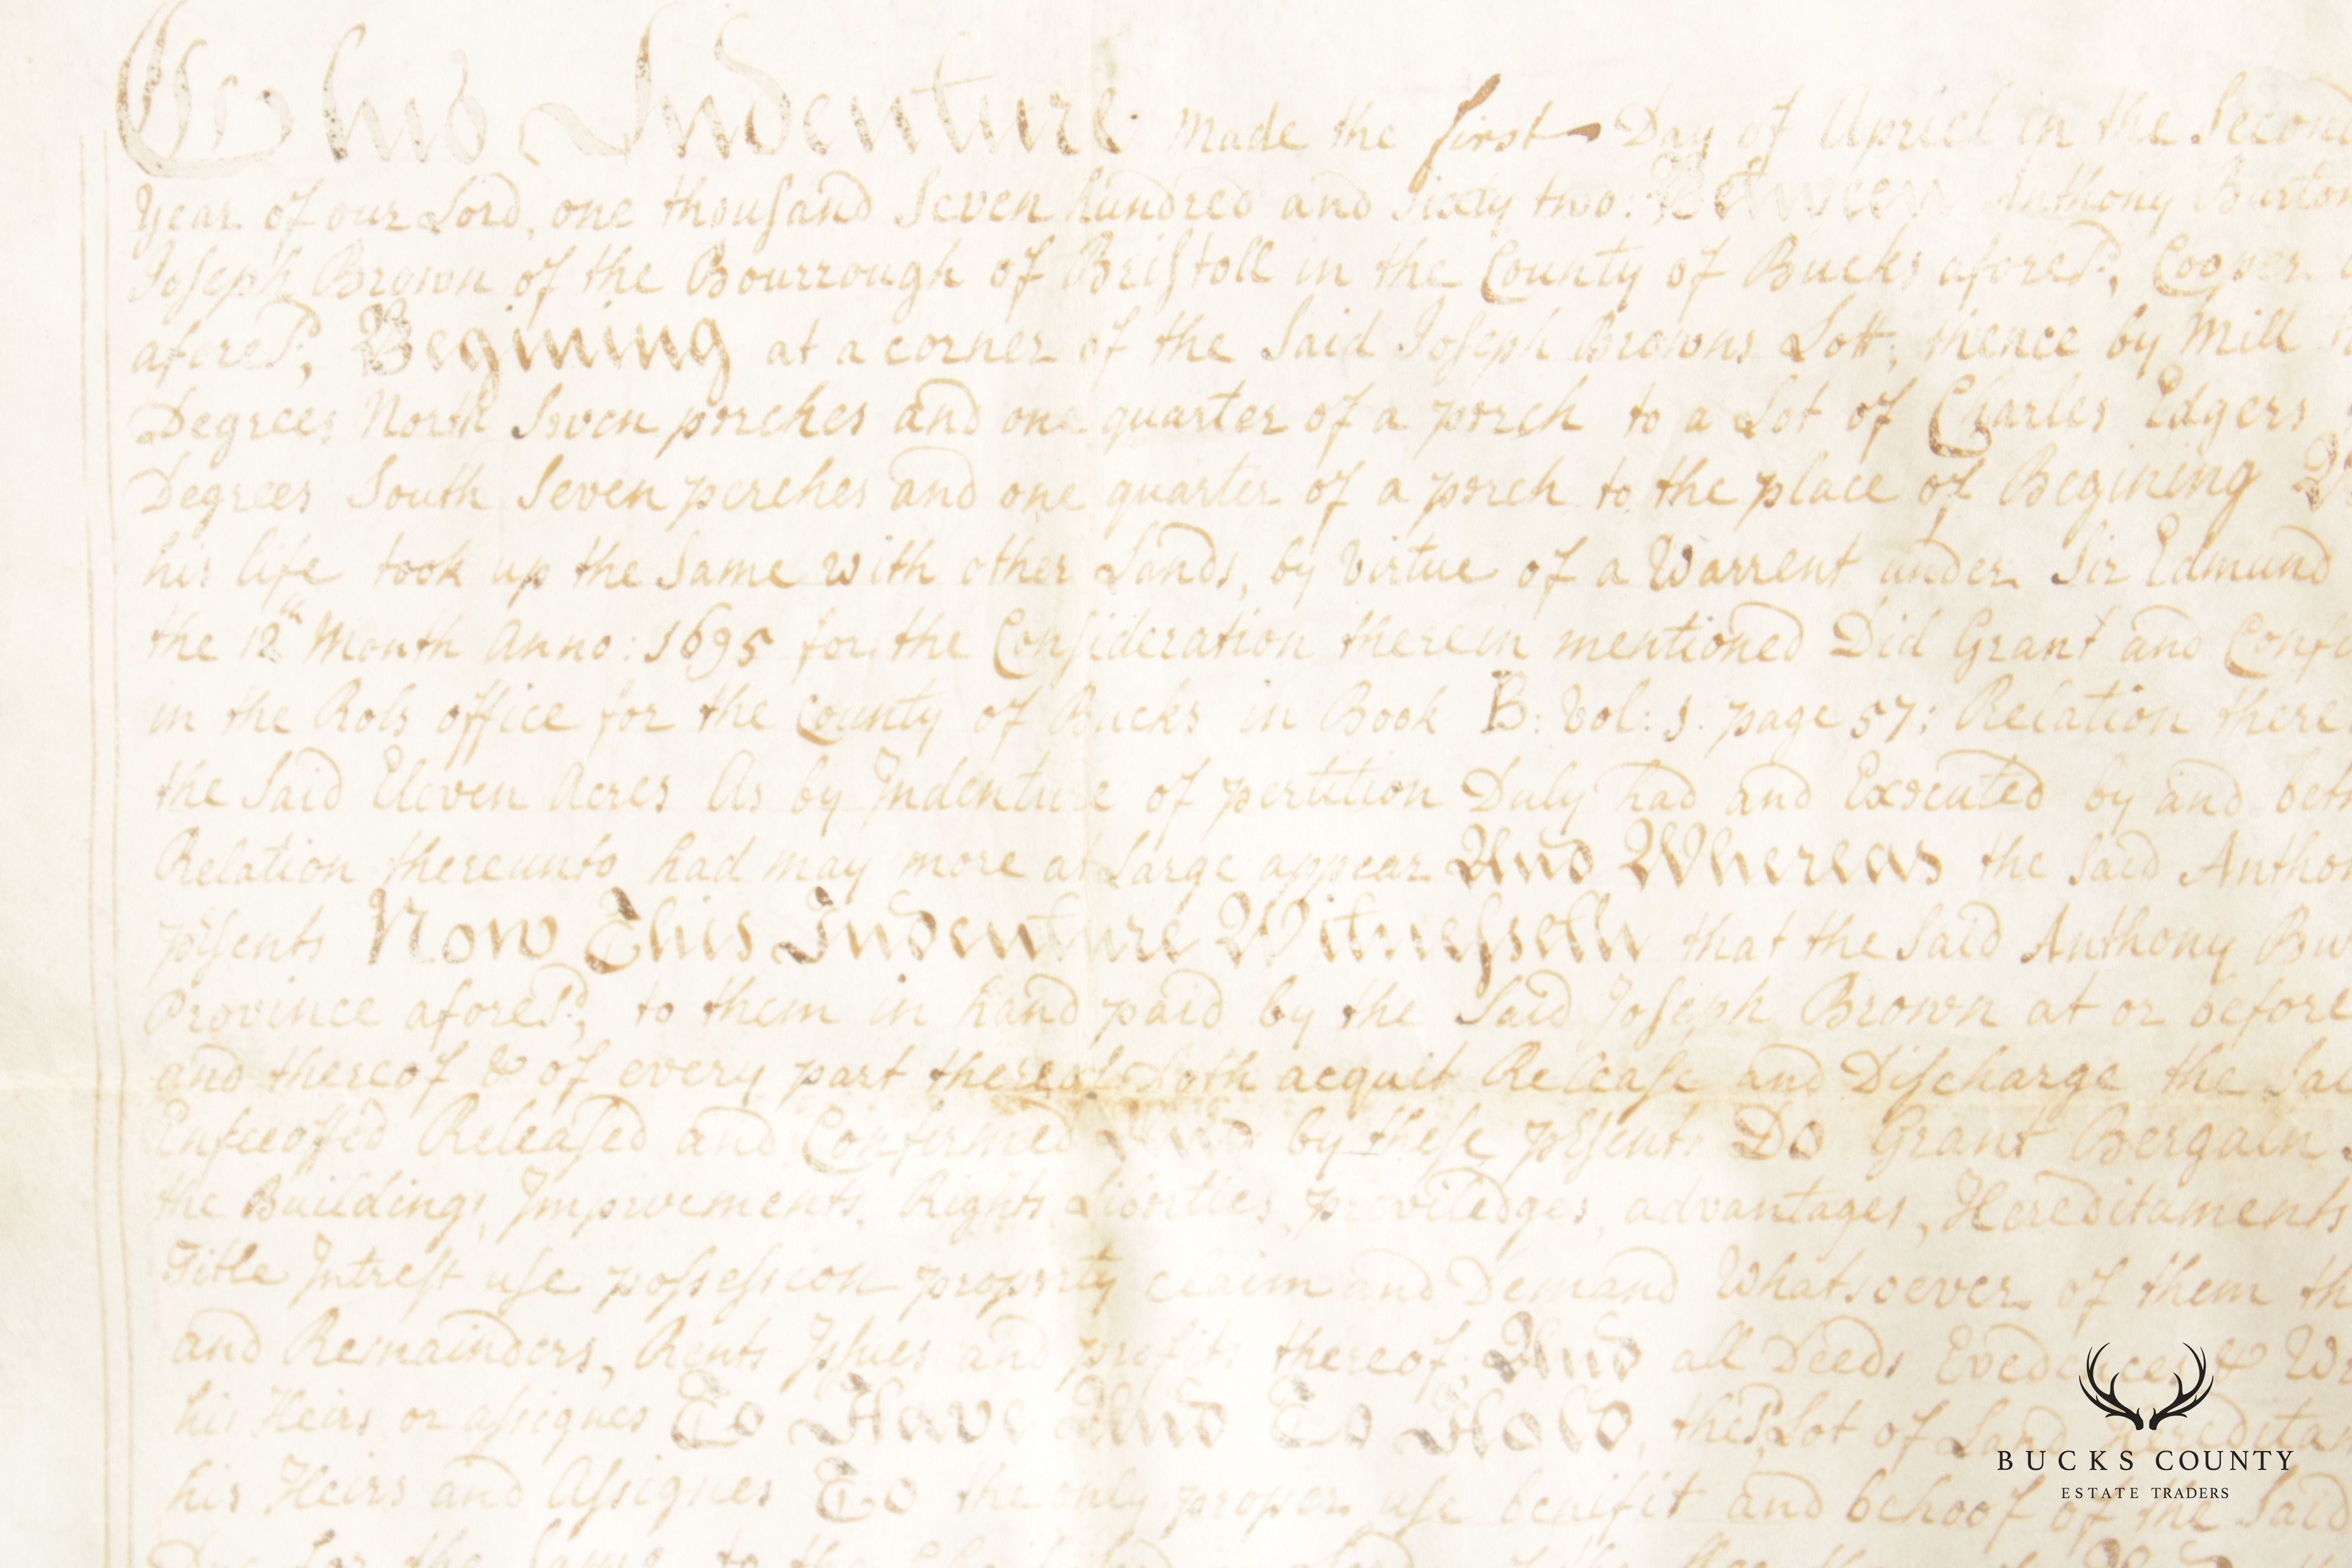 This Indenture Made the first Day of Apriel in the Second
Year of our Lord, one thousand Seven hundred and Sixty two: Between Anthony Burton
Joseph Brown of the Bourrough of Bristoll in the County of Bucks afores.d, Cooper
afores.d, Begining at a corner of the Said Joseph Browns Lott, thence by Mill
Degrees North Seven porches and one quarter of a porch to a Lot of Charles Edgers
Degrees South Seven perches and one quarter of a porch to the place of Begining
his life took up the Same with other Lands, by Virtue of a Warrent under Sir Edmund
the 12th Month Anno: 1695 for the Consideration therein mentioned Did Grant and Conf
in the Rols office for the County of Bucks in Book B: Vol: 1. page 57: Relation there
the Said Eleven Acres As by Indenture of pertition Duly had and Executed by and betw
Relation thereunto had may more at Large appear And Whereas the Said Anthon
psents Now This Indenture Witnesseth that the Said Anthony Bu
Province afores.d, to them in hand paid by the Said Joseph Brown at or before
and thereof & of every part thereof Doth acquit Release and Discharge the Sai
Enfeoffed Released and Confirmed And by these psents Do Grant Bergain
the Buildings, Improvements, Rights, Liberties, proviledges, advantages, Hereditaments
Title Intrest use possession property claim and Demand Whatsoever of them th
and Remainders, Rents Issues and profits thereof, And all Deeds Evedences & Wr
his Heirs or assignes To Have And To Hold, the s.d Lot of Land Hereditam
his Heirs and Assignes To the only proper use benifit and behoof of the Said
BUCKS COUNTY
ESTATE TRADERS